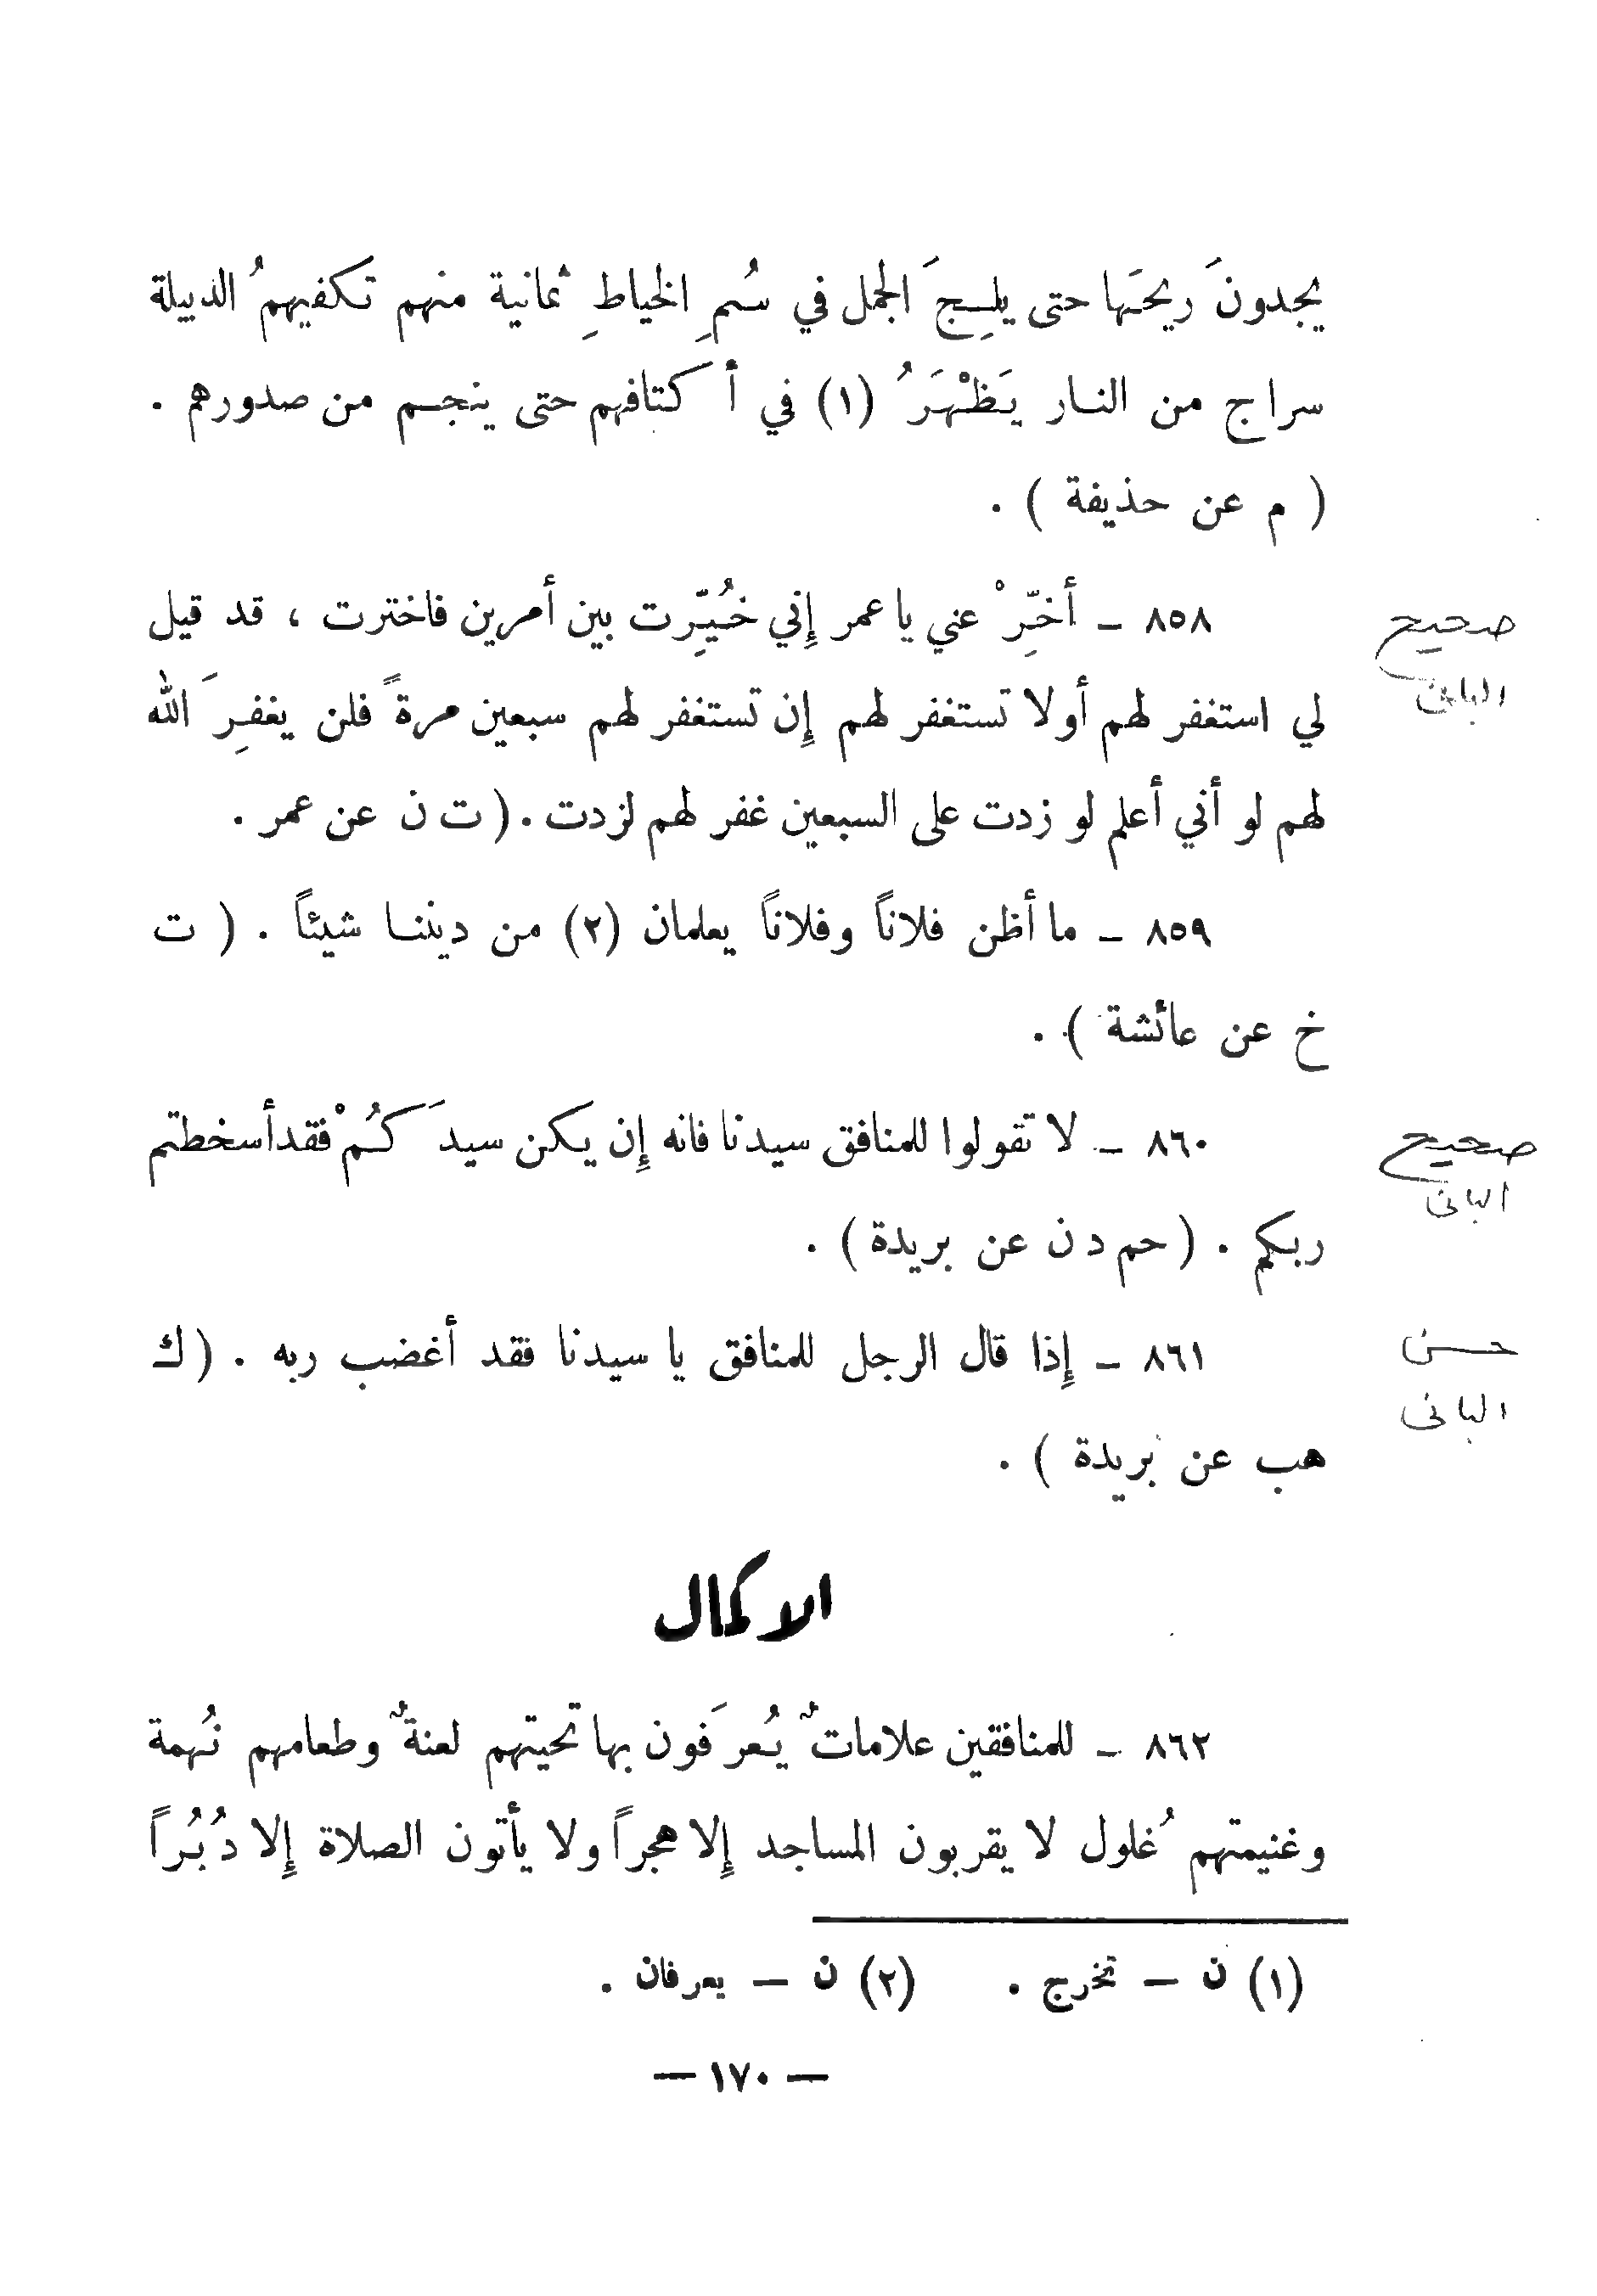 يجدونَ ريحَها حتى يلِجَ الجمل في سُمِ الخياطِ ثمانية منهم تكفيهمُ الدبيلة
سراج من النار يَظْهَرُ (١) في أكتافهم حتى ينجم من صدورهم .
( م عن حذيفة ) .
٨٥٨ – أخّرْ عني يا عمر إِني خُيّرِت بين أمرين فاخترت ، قد قيل
صحيح
لي استغفر لهم أولا تستغفر لهم إِن تستغفر لهم سبعين مرةً فلن يغفرِ الله
البانى
لهم لو أني أعلم لو زدت على السبعين غفر لهم لزدت . ( ت ن عن عمر .
٨٥٩ – ما أظن فلاناً وفلاناً يعلمان (٢) من ديننا شيئاً . ( ت
خ عن عائشة ) .
٨٦٠ – لا تقولوا للمنافق سيدنا فانه إِن يكن سيدَكُمْ فقد أسخطتم
صحيح
البانى
ربكم . ( حم د ن عن بريدة ) .
٨٦١ – إِذا قال الرجل للمنافق يا سيدنا فقد أغضب ربه . ( ك
حسن
البانى
هب عن بريدة ) .
الاكمال
٨٦٢ – للمنافقين علاماتٌ يُعرَفون بها تحيتهم لعنةٌ وطعامهم نُهمة
وغنيمتهم غُلول لا يقربون المساجد إِلا هجراً ولا يأتون الصلاة إِلا دُبُراً
(١) ن – تخرج . (٢) ن – يعرفان .
— ١٧٠ —